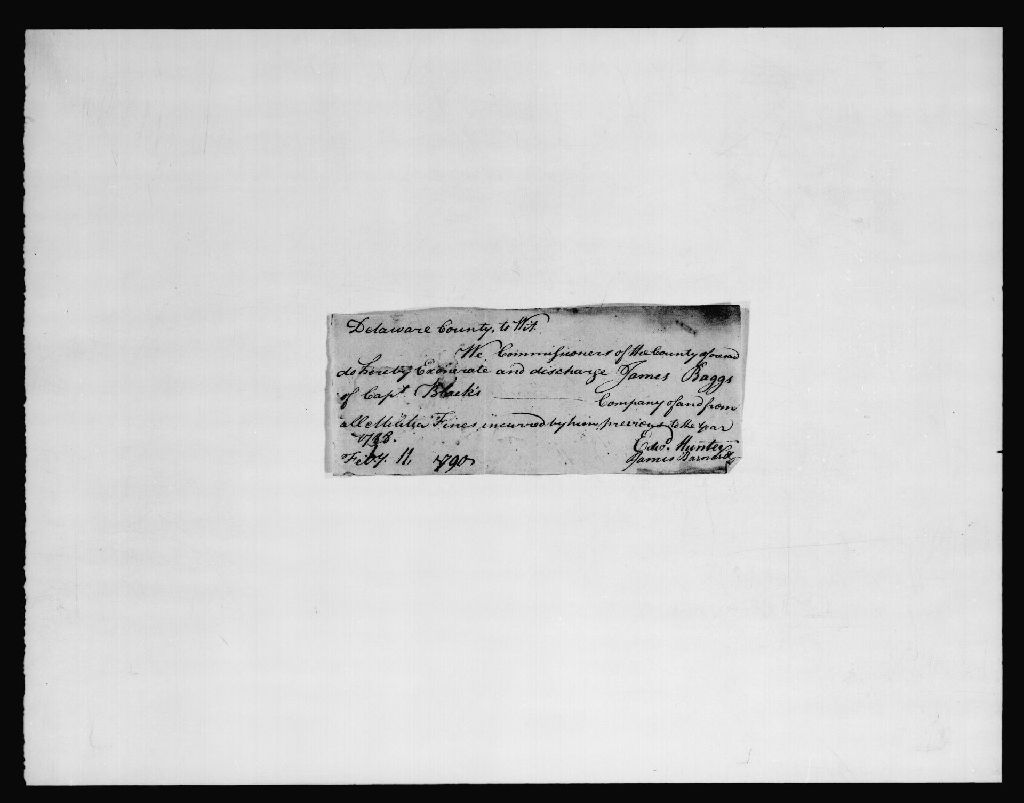 Delaware County, to Wit.
We Commissioners of the County aforesaid
do hereby Exonerate and discharge James Baggs
of Capt. Black's Company of and from
all Militia Fines, incurred by him, previous to the year
1788.
Feby. 11, 1790
Edwd. Hunter
James Barnard